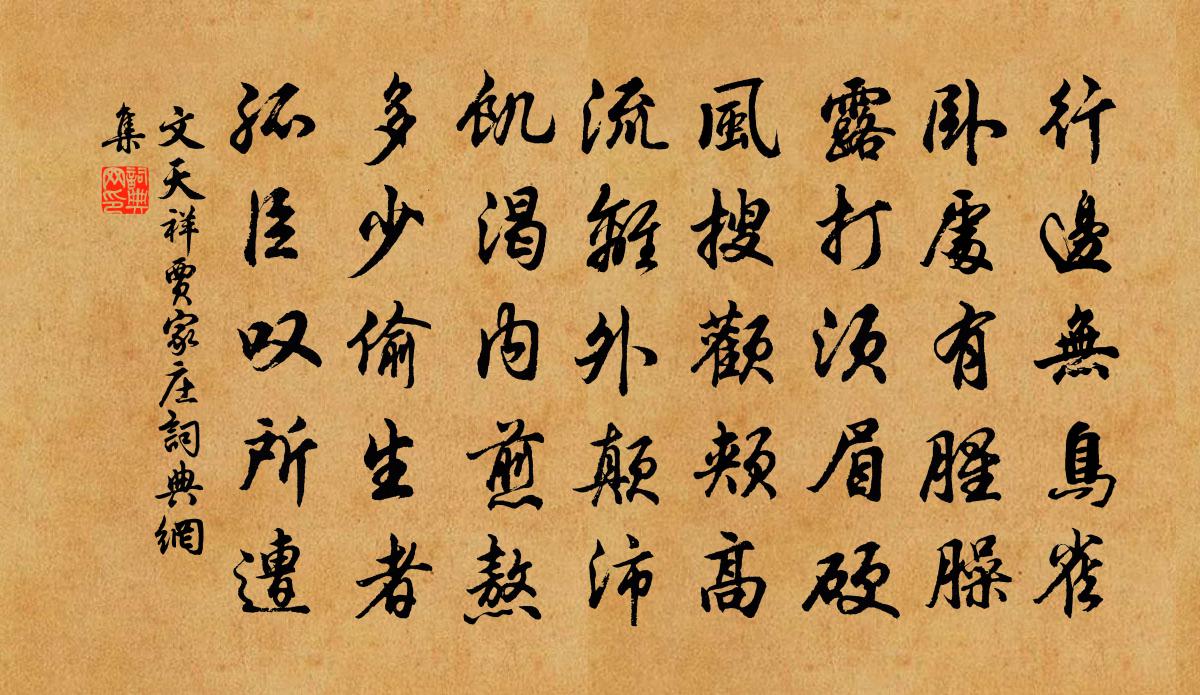 行邊無鳥雀
卧處有腥臊
露打須眉硬
風搜顴頰高
流離外顛沛
飢渴內煎熬
多少偷生者
孤臣叹所遭
文天祥賈家庄詞典網
集
詞典网印